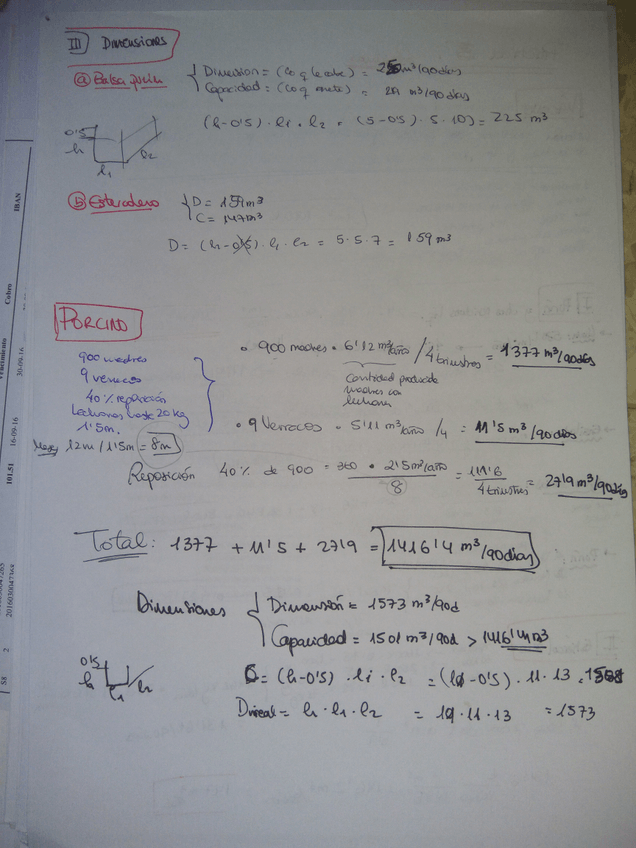 III Dimensiones
ⓐ Balsa purín
Dimension = (lo q le cabe) = 250 m³/90 días
Capacidad = (lo q mete) = m³/90 días
0'5
h
l1
l2
(h-0'5) · l1 · l2 = (5-0'5) · 5 · 10) = 225 m³
ⓑ Estercolero
D = 159 m³
C = 147 m³
D = (h-0'5) · l1 · l2 = 5 · 5 · 7 = 159 m³
PORCINO
900 madres
9 verracos
40% reposición
Lechones hasta 20 kg
1'5m.
12m / 1'5m = 8m
• 900 madres • 6'12 m³/año / 4 trimestres = 1377 m³/90 días
Cantidad producida
madres con
lechones
• 9 Verracos • 5'11 m³/año /4 = 11'5 m³/90 días
Reposición 40% de 900 = 360 • 2'5 m³/año / 8 = 111'6 / 4 trimestres = 27'9 m³/90 días
Total: 1377 + 11'5 + 27'9 = 1416'4 m³/90 días
Dimensiones
Dimensión = 1573 m³/90d
Capacidad = 1501 m³/90d > 1416'4 m³
0'5
h
l1
l2
C = (h-0'5) · l1 · l2 = (11-0'5) · 11 · 13 =
Dreal = h · l1 · l2 = 11 · 11 · 13 = 1573
IBAN
Cobro
Vencimiento
30-09-16
16-09-16
101.51
58 2